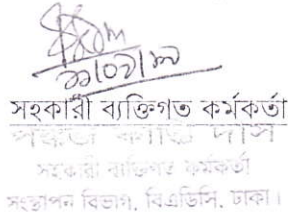 ১১/০২/১৮
সহকারী ব্যক্তিগত কর্মকর্তা
পঙ্কজ কান্তি দাস
সহকারী ব্যক্তিগত কর্মকর্তা
সংস্থাপন বিভাগ, বিএডিসি, ঢাকা।